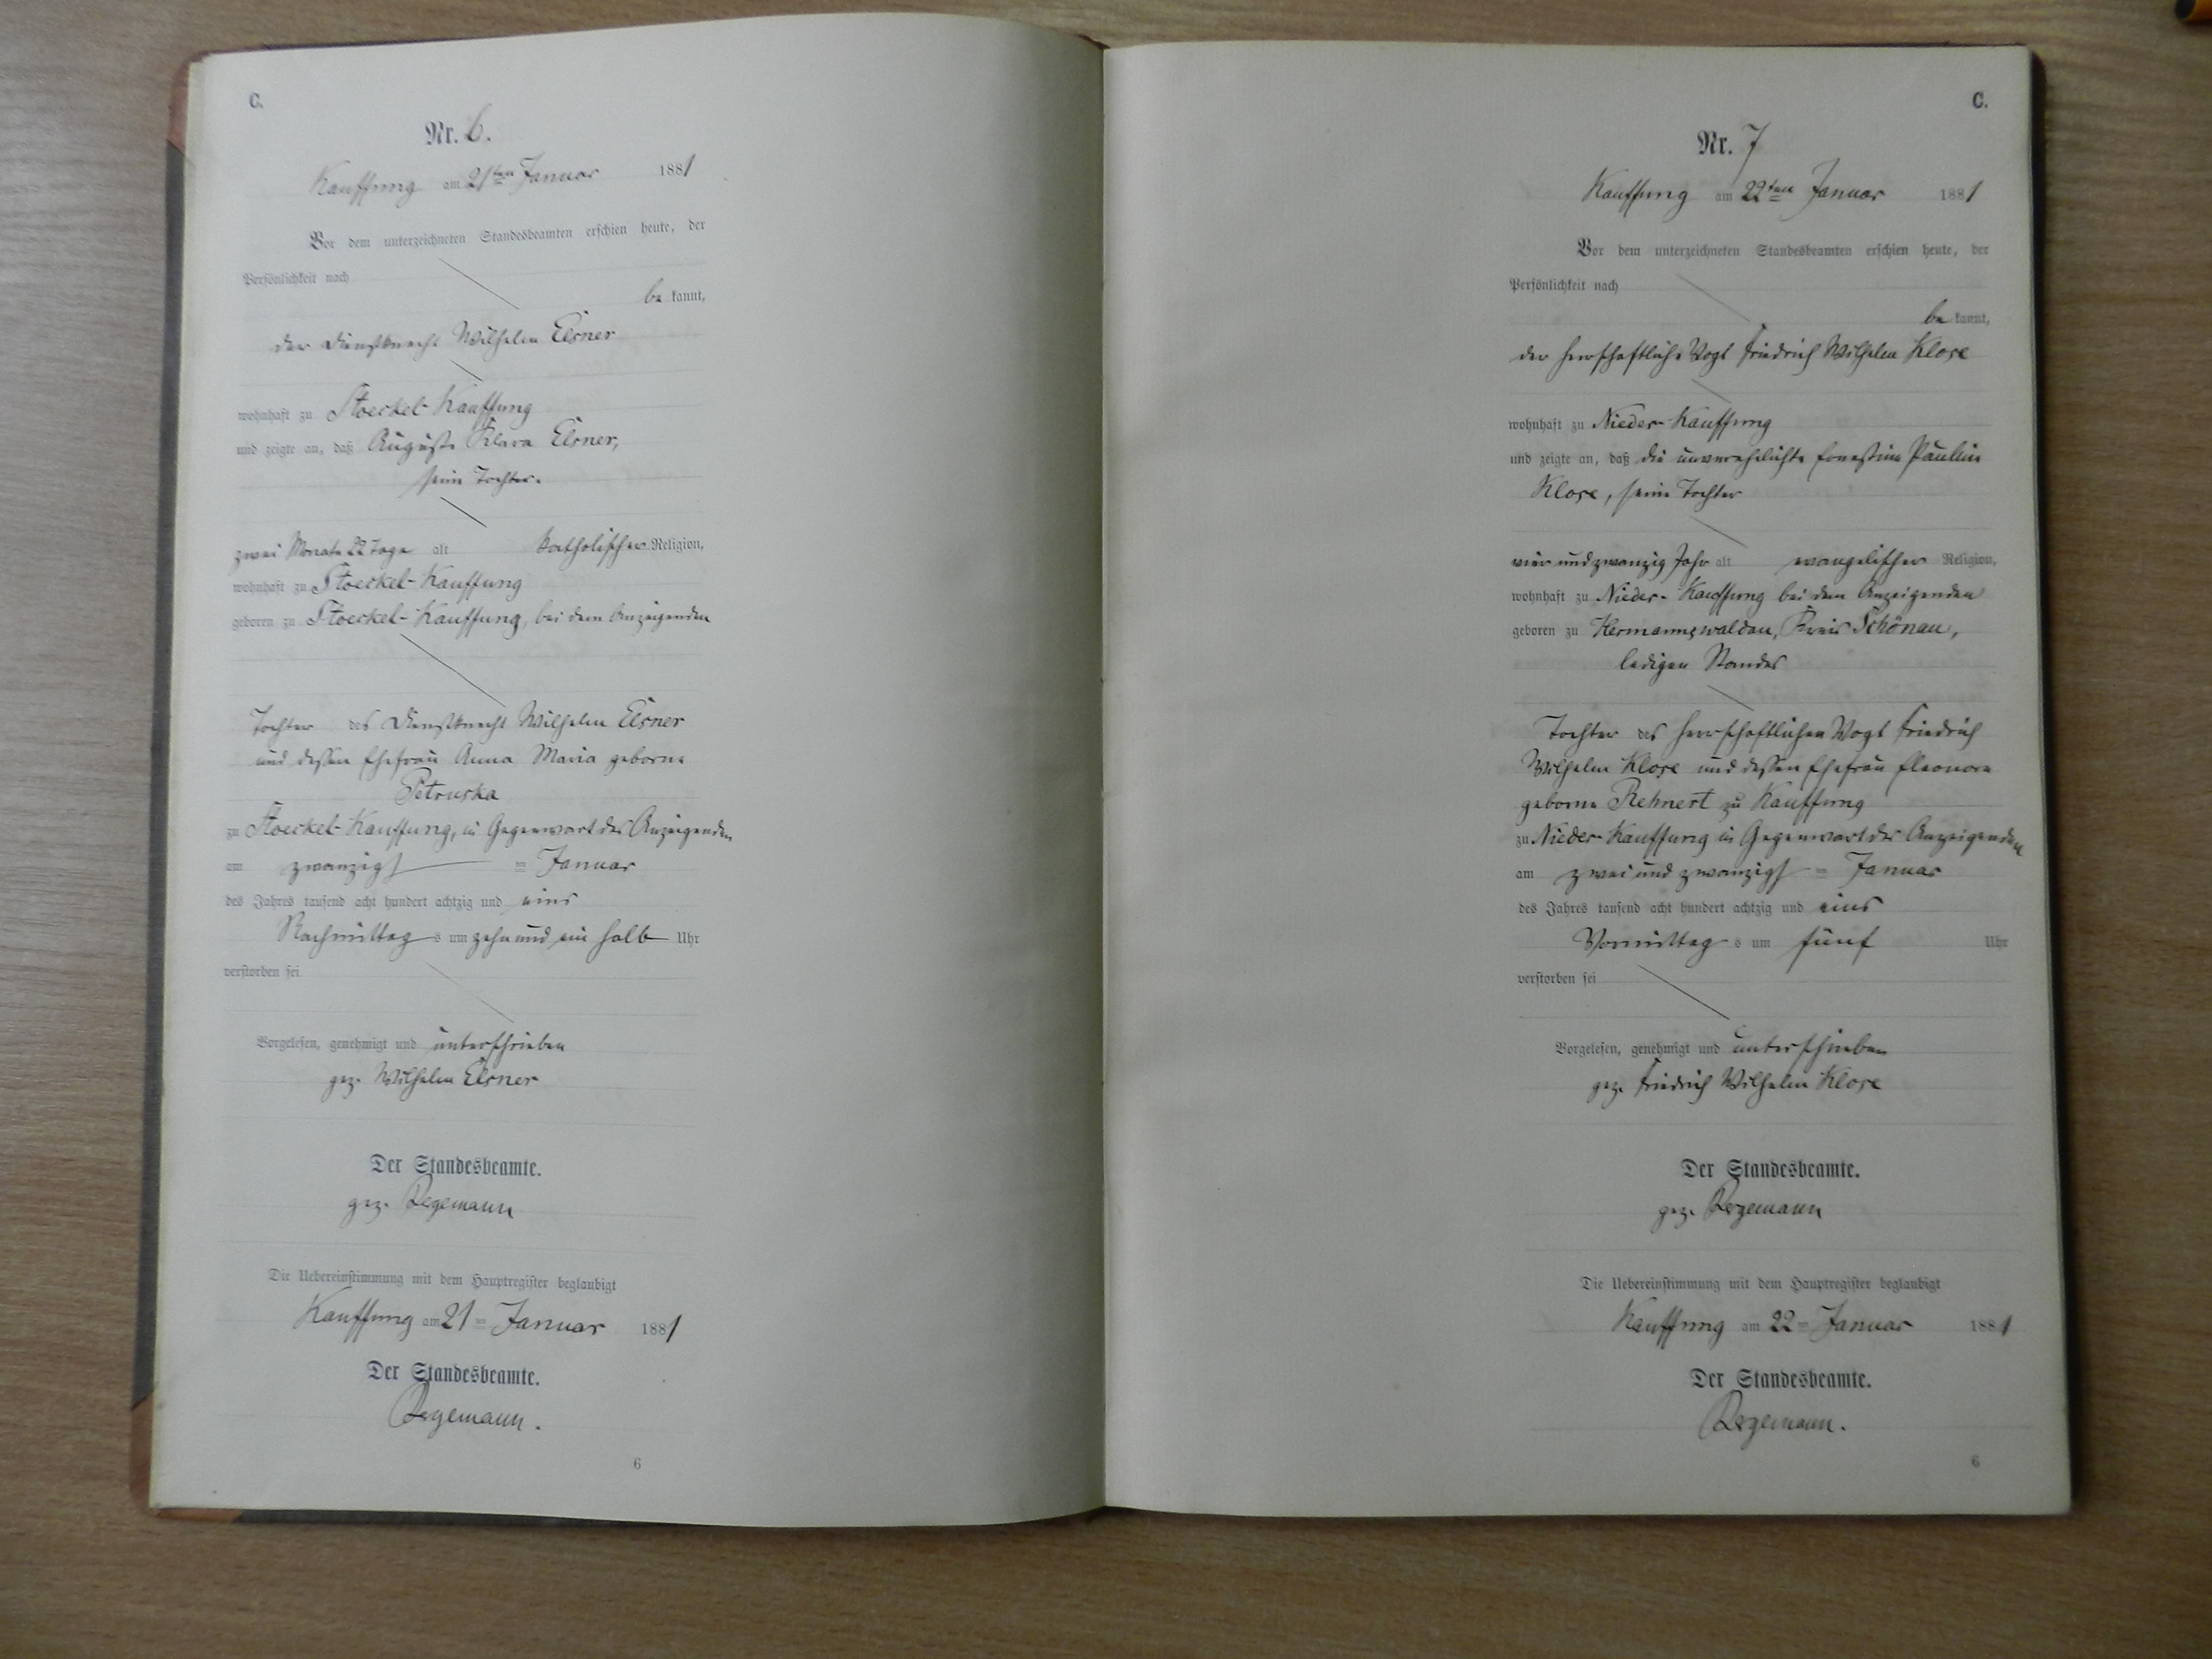 C.
Nr. 6.
Kauffung am 21ten Januar 1881
Vor dem unterzeichneten Standesbeamten erschien heute, der
Persönlichkeit nach
be kannt,
der Dienstknecht Wilhelm Elsner
wohnhaft zu Stoeckel-Kauffung
und zeigte an, daß Auguste Klara Elsner,
seine Tochter.
zwei Monate 22 Tage alt katholischer Religion,
wohnhaft zu Stoeckel-Kauffung
geboren zu Stoeckel-Kauffung, bei dem Anzeigenden
Tochter des Dienstknecht Wilhelm Elsner
und dessen Ehefrau Anna Maria geborne
Petruska
zu Stoeckel-Kauffung, in Gegenwart des Anzeigenden
am zwanzigsten Januar
des Jahres tausend acht hundert achtzig und eins
Nachmittag s um zehn und ein halb Uhr
verstorben sei
Vorgelesen, genehmigt und unterschrieben
gez. Wilhelm Elsner
Der Standesbeamte.
gez. Degemann
Die Uebereinstimmung mit dem Hauptregister beglaubigt
Kauffung am 21ten Januar 1881
Der Standesbeamte.
Degemann.
6
C.
Nr. 7
Kauffung am 22ten Januar 1881
Vor dem unterzeichneten Standesbeamten erschien heute, der
Persönlichkeit nach
be kannt,
der herrschaftliche Vogt Friedrich Wilhelm Klose
wohnhaft zu Nieder-Kauffung
und zeigte an, daß die unverehelichte Ernestine Pauline
Klose, seine Tochter
vier und zwanzig Jahr alt evangelischer Religion,
wohnhaft zu Nieder-Kauffung bei dem Anzeigenden
geboren zu Hermannswaldau, Kreis Schönau,
ledigen Standes
Tochter des herrschaftlichen Vogt Friedrich
Wilhelm Klose und dessen Ehefrau Eleonore
geborne Rehnert zu Kauffung
zu Nieder-Kauffung in Gegenwart des Anzeigenden
am zwei und zwanzigsten Januar
des Jahres tausend acht hundert achtzig und eins
Vormittag s um fünf Uhr
verstorben sei
Vorgelesen, genehmigt und unterschrieben
gez. Friedrich Wilhelm Klose
Der Standesbeamte.
gez. Degemann
Die Uebereinstimmung mit dem Hauptregister beglaubigt
Kauffung am 22ten Januar 1881
Der Standesbeamte.
Degemann.
6